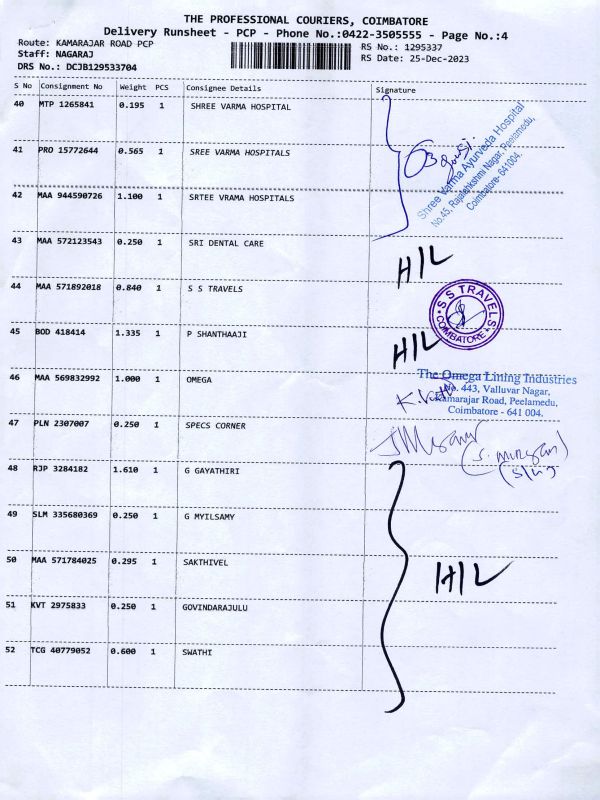 THE PROFESSIONAL COURIERS, COIMBATORE
Delivery Runsheet - PCP - Phone No.:0422-3505555 - Page No.:4
Route: KAMARAJAR ROAD PCP
Staff: NAGARAJ
DRS No.: DCJB129533704
RS No.: 1295337
RS Date: 25-Dec-2023
S No Consignment No Weight PCS Consignee Details Signature
40 MTP 1265841 0.195 1 SHREE VARMA HOSPITAL
41 PRO 15772644 0.565 1 SREE VARMA HOSPITALS
Shree Varma Ayurveda Hospital
No.45, Rajalehkshmi Nagar, Peelamedu,
Coimbatore- 641004.
42 MAA 944590726 1.100 1 SRTEE VRAMA HOSPITALS
43 MAA 572123543 0.250 1 SRI DENTAL CARE
H/L
44 MAA 571892018 0.840 1 S S TRAVELS
S S TRAVELS
COIMBATORE
45 BOD 418414 1.335 1 P SHANTHAAJI
H/L
46 MAA 569832992 1.000 1 OMEGA
The Omega Lining Industries
No. 443, Valluvar Nagar,
Kamarajar Road, Peelamedu,
Coimbatore - 641 004.
47 PLN 2307007 0.250 1 SPECS CORNER
48 RJP 3284182 1.610 1 G GAYATHIRI
49 SLM 335680369 0.250 1 G MYILSAMY
50 MAA 571784025 0.295 1 SAKTHIVEL
H/L
51 KVT 2975833 0.250 1 GOVINDARAJULU
52 TCG 40779052 0.600 1 SWATHI